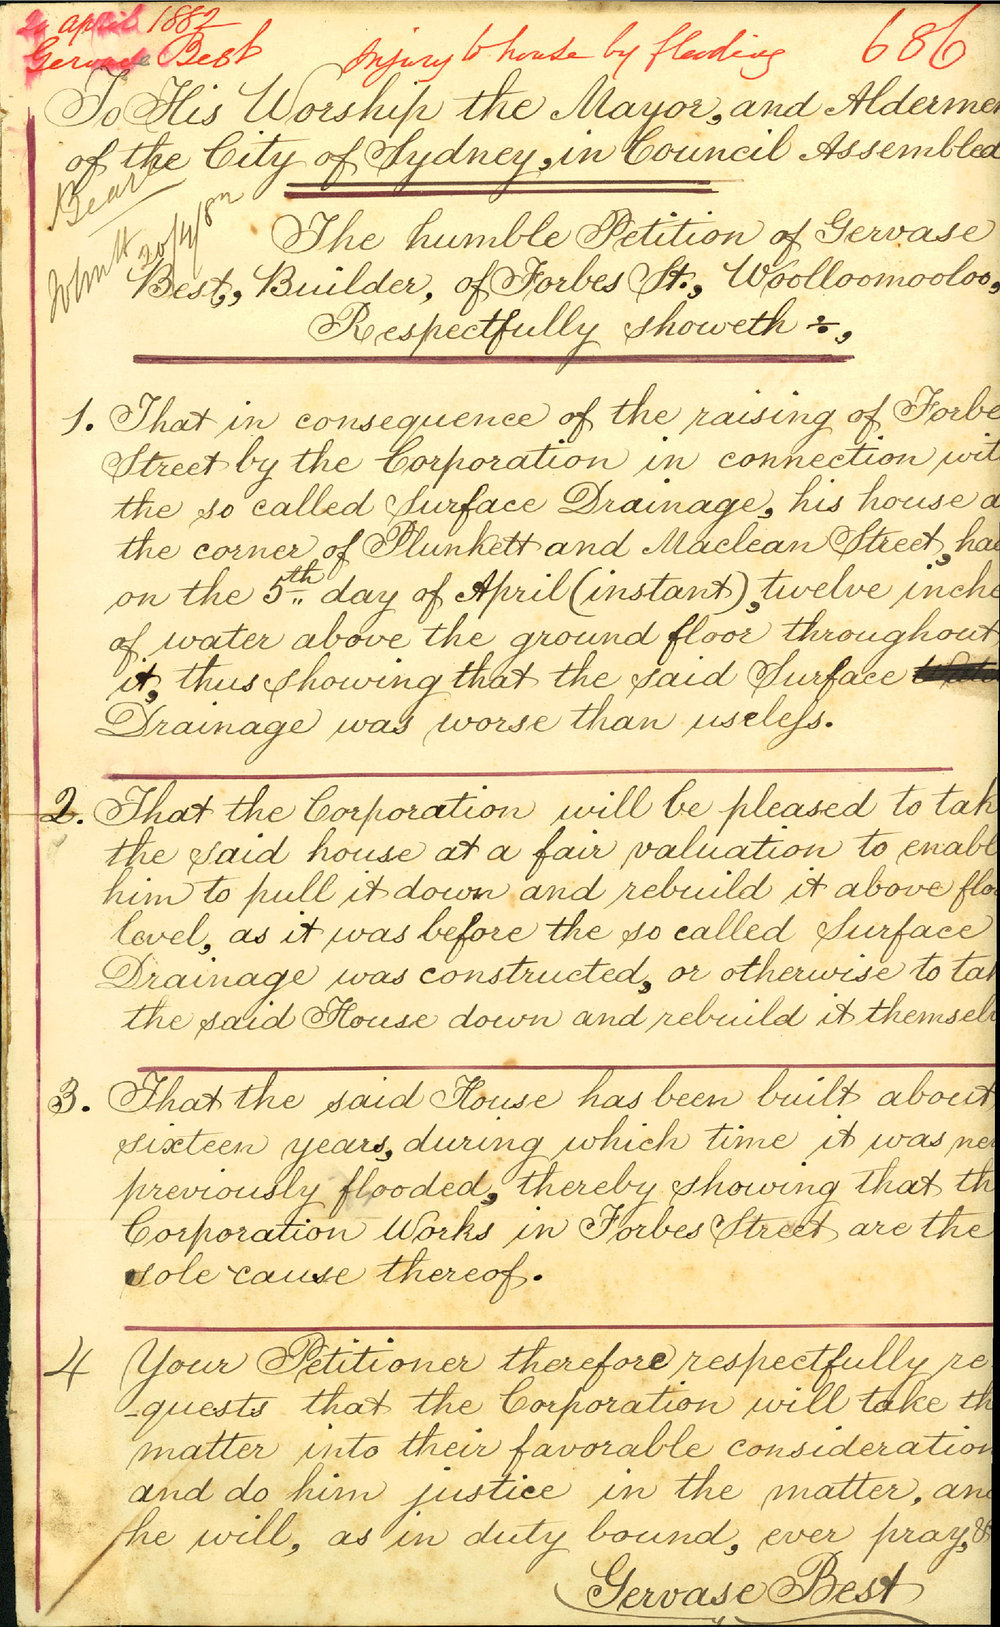 april 1882
Gervase Best
Injury to house by flooding
686
To His Worship the Mayor, and Aldermen
of the City of Sydney, in Council Assembled
20/4/82
The humble Petition of Gervase
Best, Builder, of Forbes St., Woolloomooloo,
Respectfully showeth :-,
1. That in consequence of the raising of Forbe
Street by the Corporation in connection wit
the so called Surface Drainage, his house a
the corner of Plunkett and Maclean Street, had
on the 5th day of April (instant), twelve inche
of water above the ground floor throughout
it, thus showing that the said Surface
Drainage was worse than useless.
2. That the Corporation will be pleased to tak
the said house at a fair valuation to enabl
him to pull it down and rebuild it above floo
level, as it was before the so called Surface
Drainage was constructed, or otherwise to tak
the said House down and rebuild it themselv
3. That the said House has been built about
sixteen years, during which time it was nev
previously flooded, thereby showing that th
Corporation Works in Forbes Street are the
sole cause thereof.
4 Your Petitioner therefore respectfully re
-quests that the Corporation will take th
matter into their favorable consideration
and do him justice in the matter, and
he will, as in duty bound, ever pray, &
Gervase Best